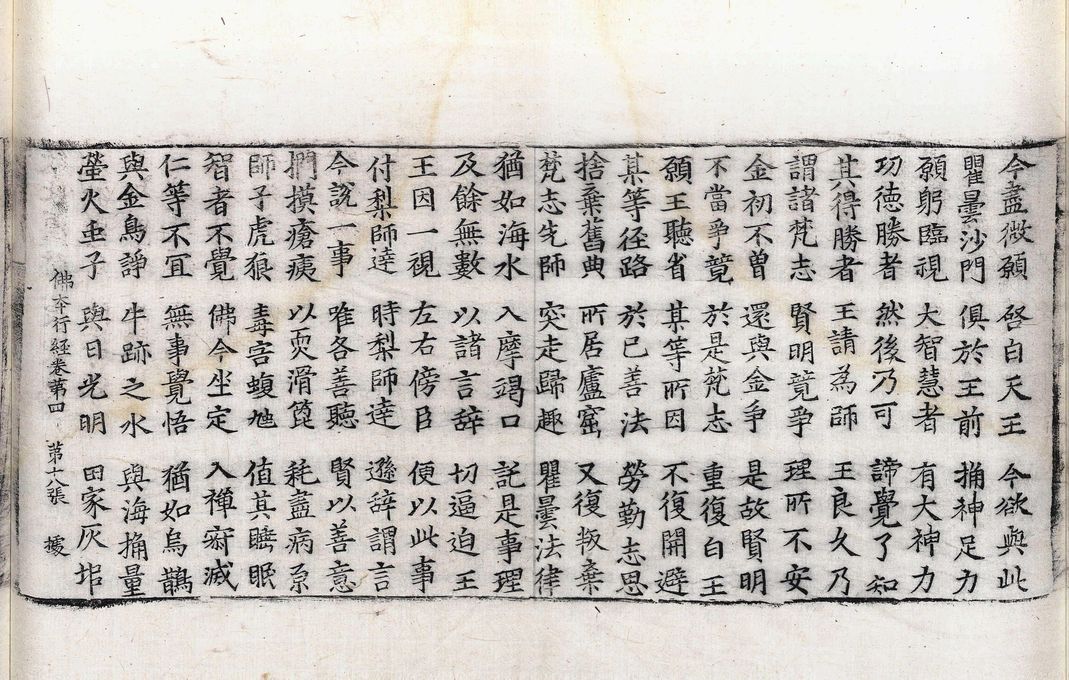 今盡微願 啓白天王 今欲與此
瞿曇沙門 俱於王前 捔神足力
願躬臨視 大智慧者 有大神力
功德勝者 然後乃可 諦覺了知
其得勝者 王請為師 王良久乃
謂諸梵志 賢明竟爭 理所不安
金初不曾 還與金爭 是故賢明
不當爭競 於是梵志 重復白王
願王聽省 某等所因 不復開避
某等径路 於已善法 勞勤志思
捨棄舊典 所居廬窟 又復叛棄
梵志先師 突走歸趣 瞿曇法律
猶如海水 入摩竭口 託是事理
及餘無數 以諸言辞 切逼迫王
王因一視 左右傍臣 便以此事
付梨師達 時梨師達 遜辞謂言
今說一事 唯各善聽 賢以善意
捫摸瘡痍 以耎滑箆 耗盡病原
師子虎狼 毒害蝮虵 值其睡眠
智者不覺 佛今坐定 入禪寂滅
仁等不冝 無事覺悟 猶如烏鵲
與金鳥諍 牛跡之水 與海捔量
螢火虫子 與日光明 田家灰坩
佛本行経卷第四 第十八張 據